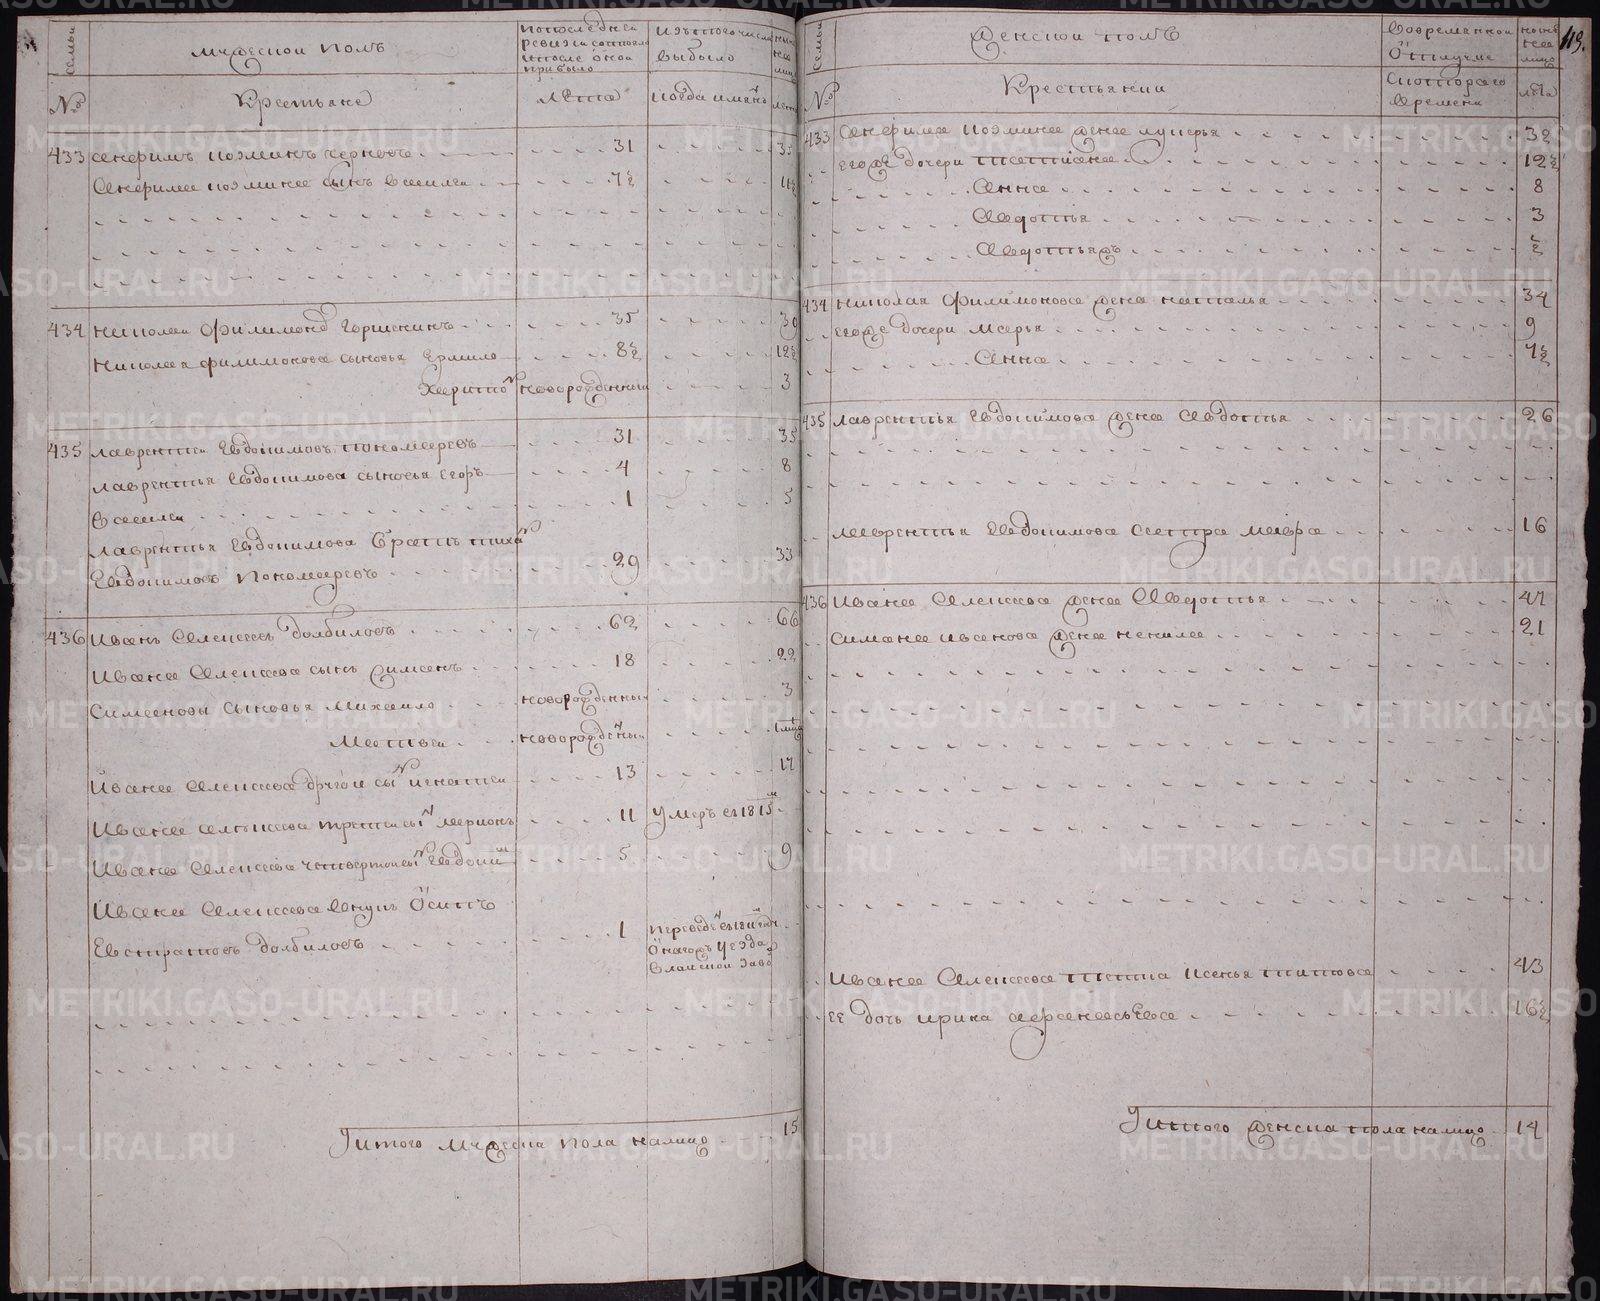 семьи
мужескои полъ
попоследнеи
ревизи состояло
ипосле оной
прибыло
изътогочисла
выбыло
ныне
налицо
№
Крестьяне
лета
когда имянъ
лета
433 Северианъ 31 35
сынъ василеи 7½ 11½
434 николаи филимоновъ Горшенинъ 35 39
николая филимонова сыновья Ермило 8½ 12½
Харитонъ новорожденныи 3
435 лаврентеи Евдокимовъ пономаревъ 31 35
лаврентья Евдокимова сыновья Егоръ 4 8
василеи 1 5
лаврентья Евдокимова братъ тиханъ
Евдокимовъ пономаревъ 29 33
436 Иванъ Алексеевъ Долбиловъ 62 66
Ивана Алексеева сынъ Симеонъ 18 22
Симеоновы сыновья Михаило новорожденныи 3
Матвеи новорожденыи
Ивана Алексеева другои сынъ игнатеи 13 17
Ивана алексеева третеи сынъ марионъ 11 умеръ въ 1815м
Ивана Алексеева четвертои сынъ Евдокимъ 5 9
Ивана Алексеева внукъ Осипъ
Евстратовъ Долбиловъ 1 переведенъ
оногожъ уезда
Итого мужеска пола налицо 15
семьи
женскои полъ
вовременнои
отлучке
ныне
налицо
119.
№
Крестьянки
Скоторого
времени
лета
433 жена лукерья 32
Егоже дочери татиана 12½
Анна 8
Авдотья 3
Авдотьяжъ ½
434 николая филимонова жена наталья 34
Егоже дочери марья 9
Анна 7½
435 лаврентья Евдокимова жена Авдотья 26
лаврентья Евдокимова сестра мавра 16
436 Ивана Алексеева жена Авдотья 47
симана иванова жена ненила 21
Ивана Алексеева тетка Ксенья титова 43
ее дочь ирина афанасьева 16½
Итого женска пола налицо 14
METRIKI.GASO-URAL.RU